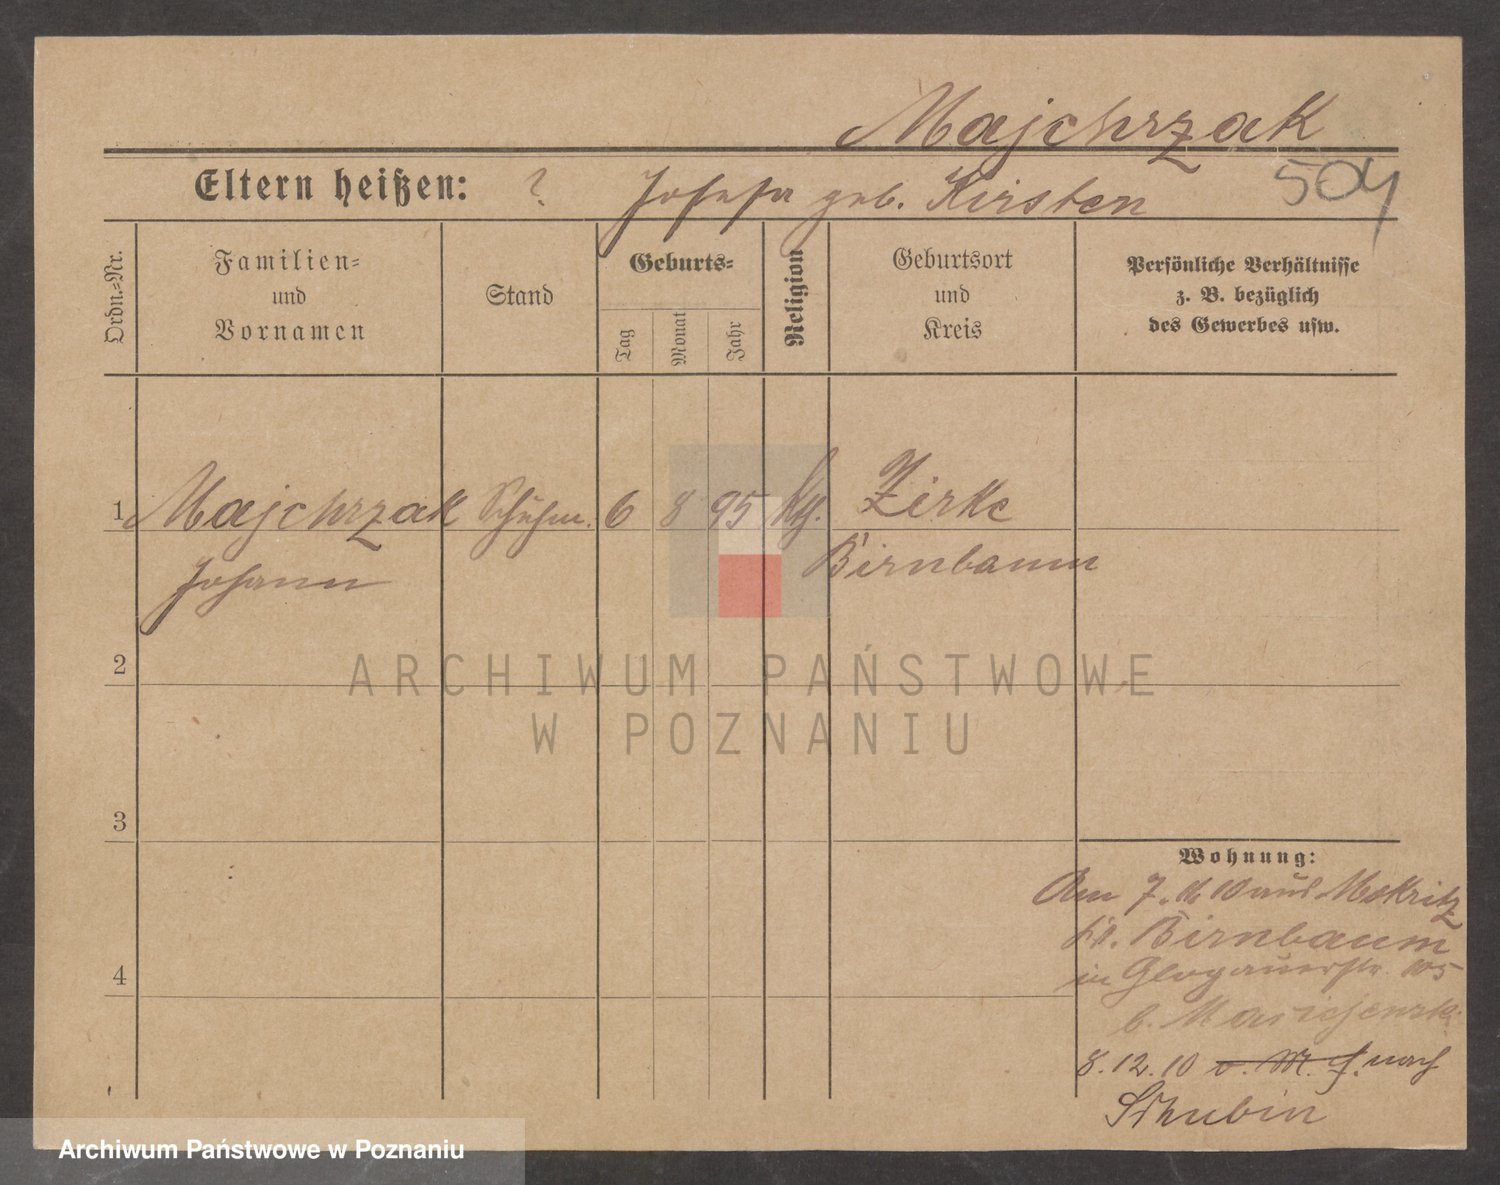 Majchrzak
504
Eltern heißen: ? Josefa geb. Kirsten
Ordn.-Nr.
Familien-
und
Vornamen
Stand
Geburts-
Tag
Monat
Jahr
Religion
Geburtsort
und
Kreis
Persönliche Verhältnisse
z. B. bezüglich
des Gewerbes usw.
1 Majchrzak Schuhm. 6 8 95 kth. Zirke
Johann Birnbaum
2
3
4
Wohnung:
Am 7. 11. 10 aus Mokritz
Kr. Birnbaum
in Glogauerstr 105
b.
8.12.10 v. M. f. nach
Schubin
ARCHIWUM PAŃSTWOWE
W POZNANIU
Archiwum Państwowe w Poznaniu